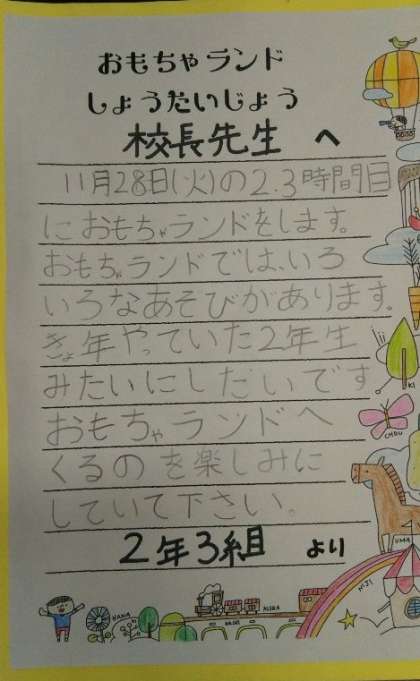 おもちゃランド
しょうたいじょう
校長先生 へ
11月28日(火)の2.3時間目
におもちゃランドをします。
おもちゃランドでは、いろ
いろなあそびがあります。
きょ年やっていた2年生
みたいにしたいです
おもちゃランドへ
くるのを楽しみに
していて下さい。
2年3組 より
KI
CHOU
UMA
NIJI
HANA